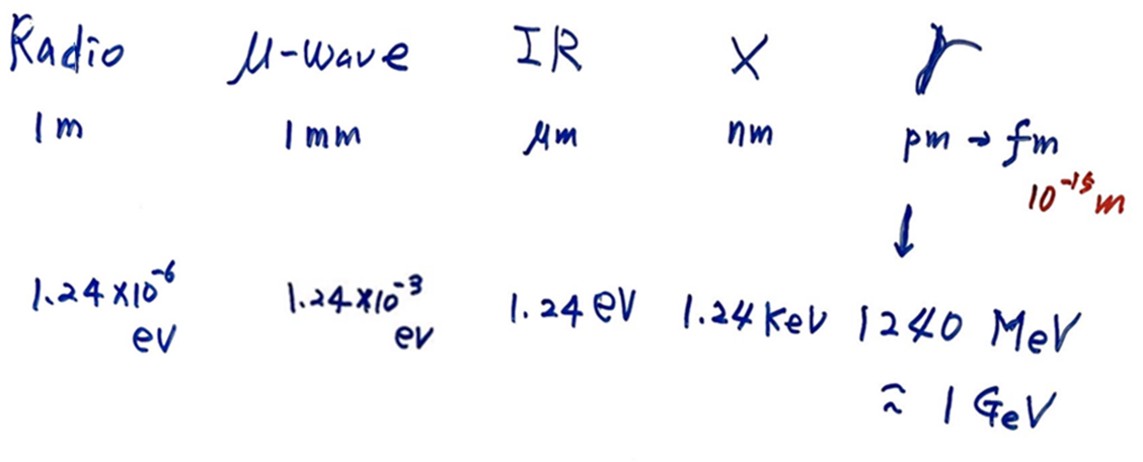 Radio μ-wave IR X γ
1 m 1 mm μm nm pm → fm
10⁻¹⁵ m
↓
1.24 × 10⁻⁶ 1.24 × 10⁻³ 1.24 eV 1.24 KeV 1240 MeV
eV eV
≈ 1 GeV